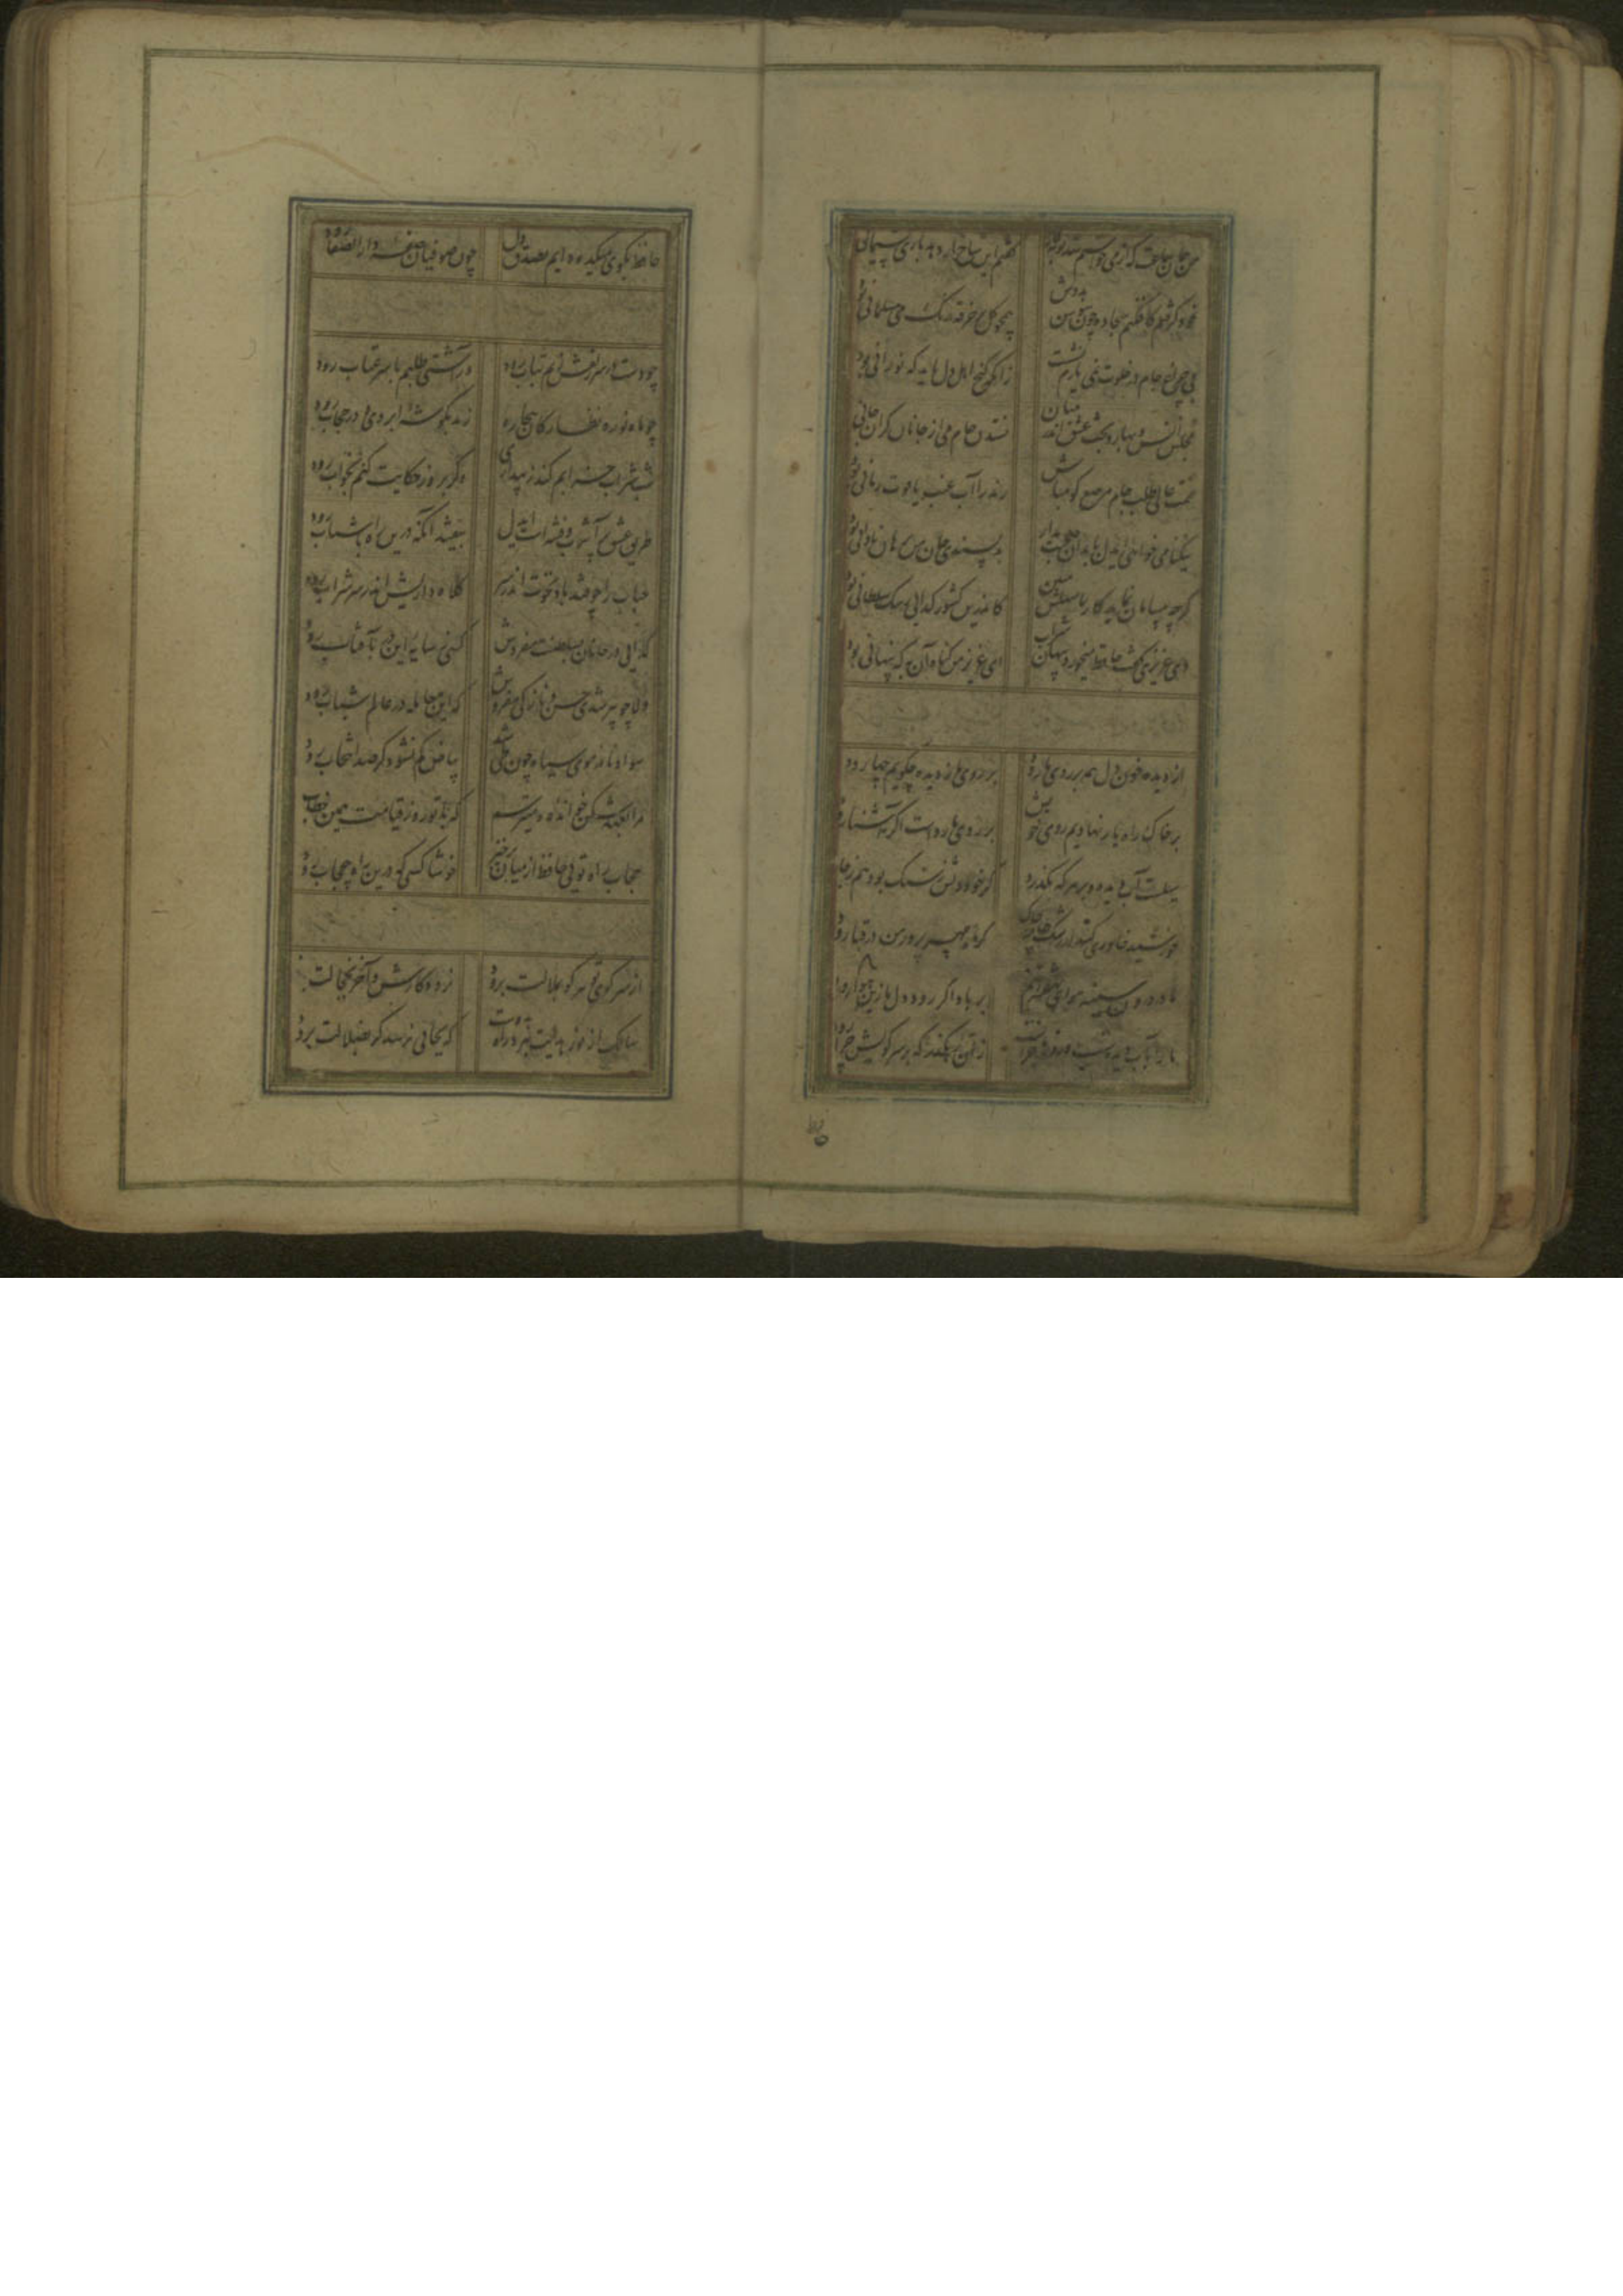 من همان ساعت که از می خواستم شد توبه کار گفتم این شاخ ار دهد باری پشیمانی
خود گرفتم کافکنم سجاده چون سوسن بدوش همچو گل بر خرقه رنگ می مسلمانی بود
بی چراغ جام در خلوت نمی یارم نشست زانکه کنج اهل دل باید که نورانی بود
مجلس انس و بهار و بحث عشق اندر میان نستدن جام می از جانان گران جانی
همت عالی طلب جام مرصع کو مباش رند را آب عنب یاقوت رمانی بود
نیکنامی خواهی ای دل با بدان صحبت مدار بد پسندی جان من برهان نادانی بود
گرچه بی سامان نماید کار ما سهلش مبین کاندرین کشور کدایی رشک سلطانی بود
دی عزیزی گفت حافظ میخورد پنهان شراب ای عزیز من گناه آن به که پنهانی بود
از دیده خون دل همه بر روی ما رود بر روی ما ز دیده چگویم چها رود
بر خاک راه یار نهادیم روی خویش بر روی ما رواست اگر آشنا رود
سیلست آب دیده و بر هر که بگذرد گر خود دلش ز سنک بود هم ز جا
خورشید خاوری کند از رشک جامه چاک گر ماه مهر پرور من در قبا رود
ما در درون سینه هوای نهفته‌ایم بر باد اگر رود دل ما زین هوا رود
ما را بآب دیده شب و روز ماجراست زان رهگذر که بر سر کویش چرا رود
حافظ بکوی میکده دایم بصدق دل چون صوفیان صفه دار الصفا رود
چو دست در سر زلفش زنم بتاب رود ور آشتی طلبم با سر عتاب رود
چو ماه نو ره نظارکان بیچاره زند بکوشه ابروی و در حجاب رود
شب شراب خرابم کند ز بیداری وگر بروز حکایت کنم بخواب رود
طریق عشق پر آشوب و فتنه است ای دل بیفتد آنکه درین راه با شتاب رود
حباب را چو فتد باد نخوت اندر سر کلاه داریش اندر سر شراب رود
گدایی در جانان بسلطنت مفروش کسی ز سایه این در بآفتاب رود
دلا چو پیر شدی حسن و نازکی مفروش که این معامله در عالم شباب رود
سواد نامه موی سیاه چون طی شد بیاض کم نشود گر صد انتخاب رود
حجاب راه تویی حافظ از میان برخیز خوشا کسی که درین راه بی حجاب رود
از سر کوی تو هر کو بملالت برود نرود کارش و آخر بخجالت
سالک از نور هدایت ببرد راه بدوست که بجایی نرسد گر بضلالت برود